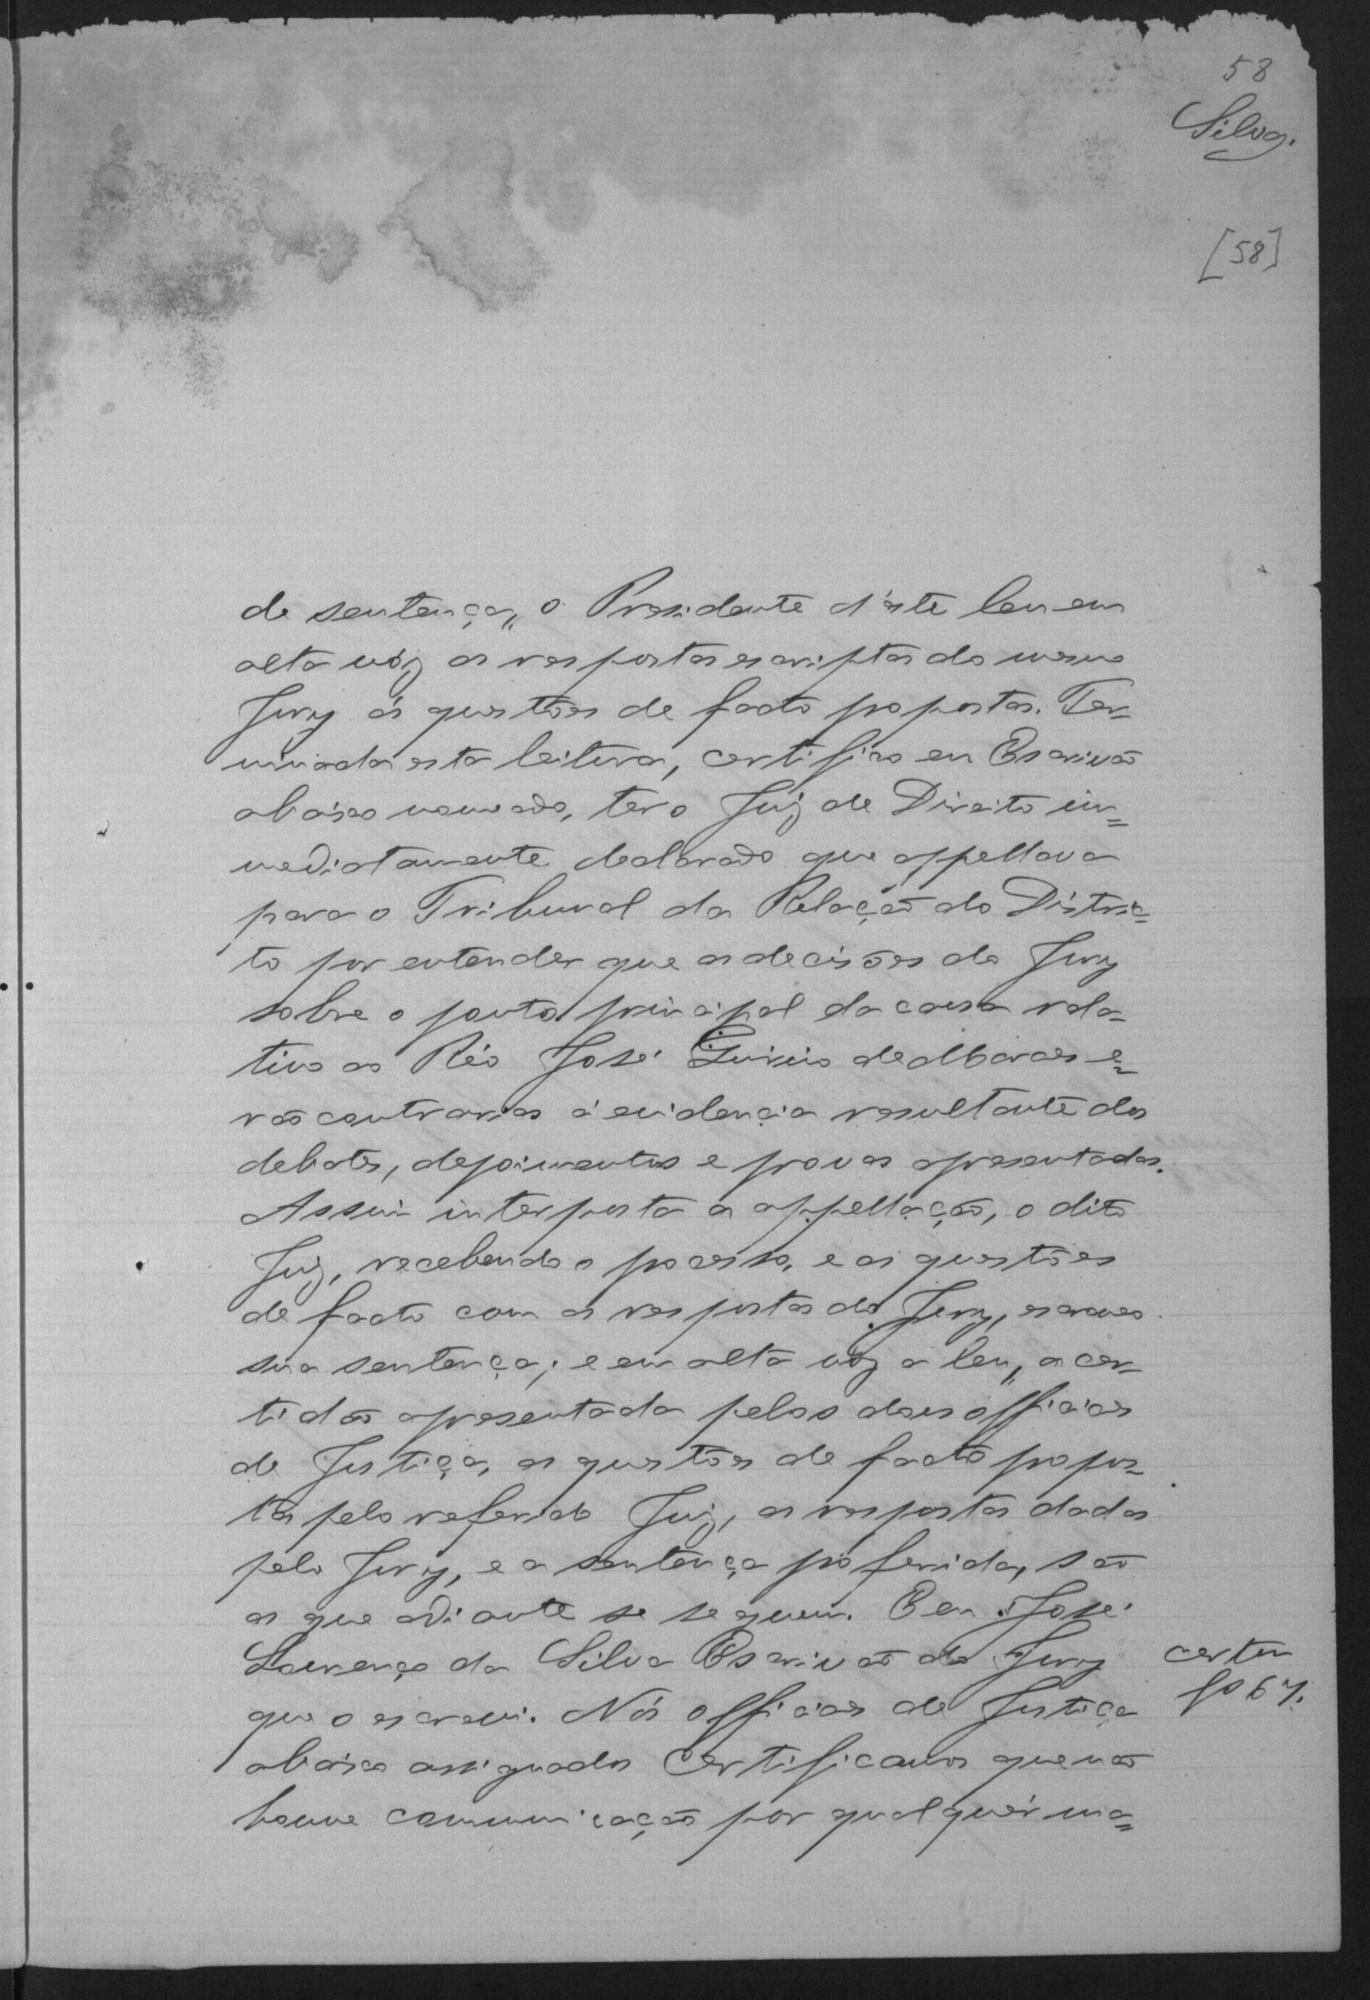 58
Silva.
[58]
de sentença, o Presidente d'este leu em
alta vóz as respostas escriptas do mesmo
Jury ás questões de facto propostas. Ter-
minada esta leitura, certifico eu Escrivão
abáixo nomeado, ter o Juiz de Direito im=
mediatamente declarado que appellava
para o Tribunal da Relação do Distric=
to por entender que as decisões do Jury
sobre o ponto principal da causa rela-
tivo ao Réo José de Moraes e=
rão contrarias á evidencia resultante dos
debates, depoimentos e provas apresentadas.
Assim interposta a appellação, o dito
Juiz, recebendo o processo, e as questões
de facto com as respostas do Jury, escreveo
sua sentença; e em alta vóz a leu, a cer-
tidão apresentada pelos dous officiaes
de Justiça, as questões de facto propos-
tas pelo referido Juiz, as respostas dadas
pelo Jury, e a sentença proferida, são
as que adiante se seguem. E eu José
Lourenço da Silva Escrivão do Jury
que o escrevi. Nós officiaes de Justiça
abáixo assignados certificamos que não
houve communicação por qualquér ma=
certim
fs 67.